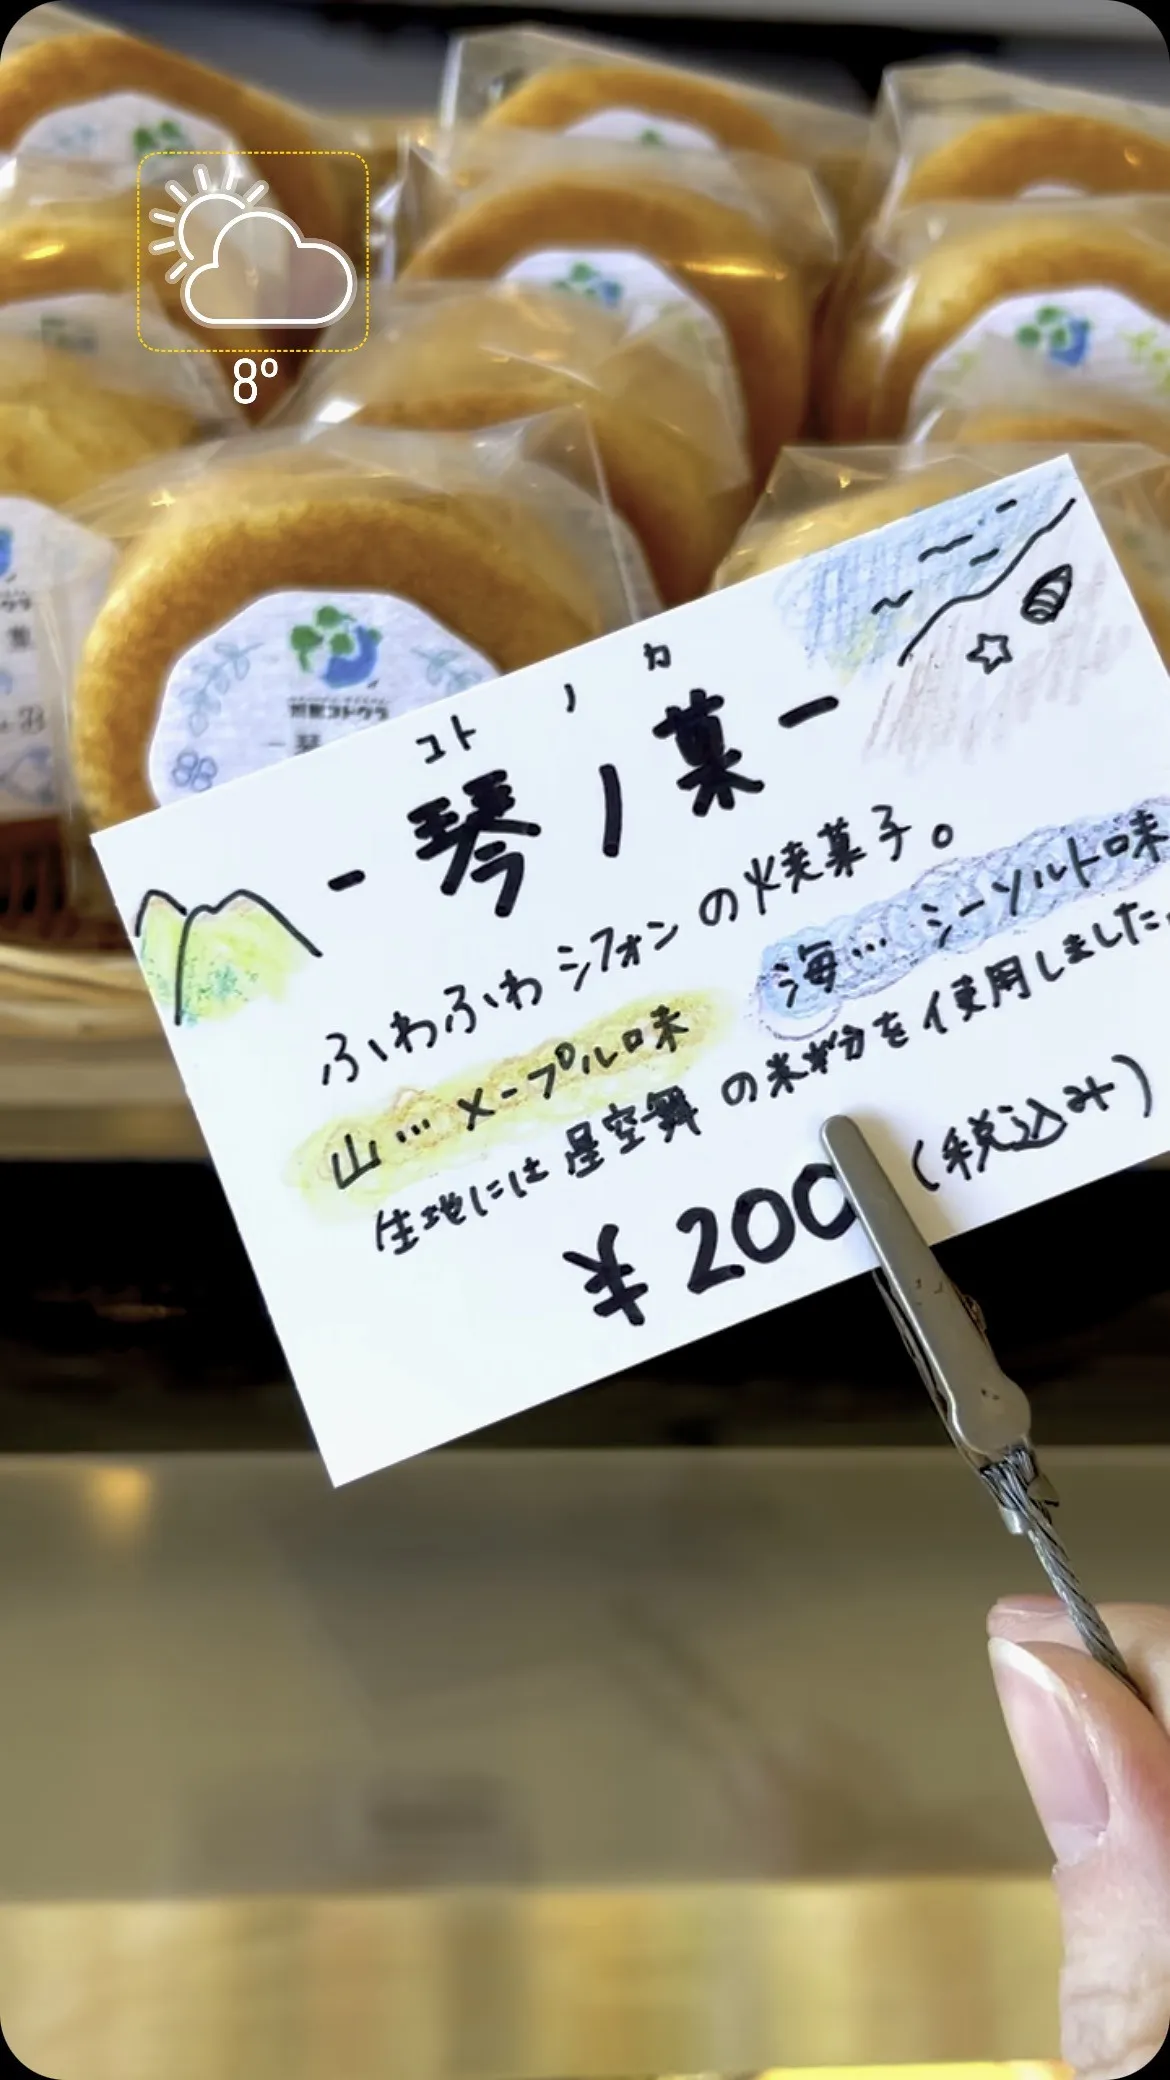 8°
コト ノ カ
- 琴ノ菓 -
ふわふわシフォンの焼菓子。
山… メープル味
海… シーソルト味
生地には星空舞の米粉を使用しました。
¥200 (税込み)
コトウラ